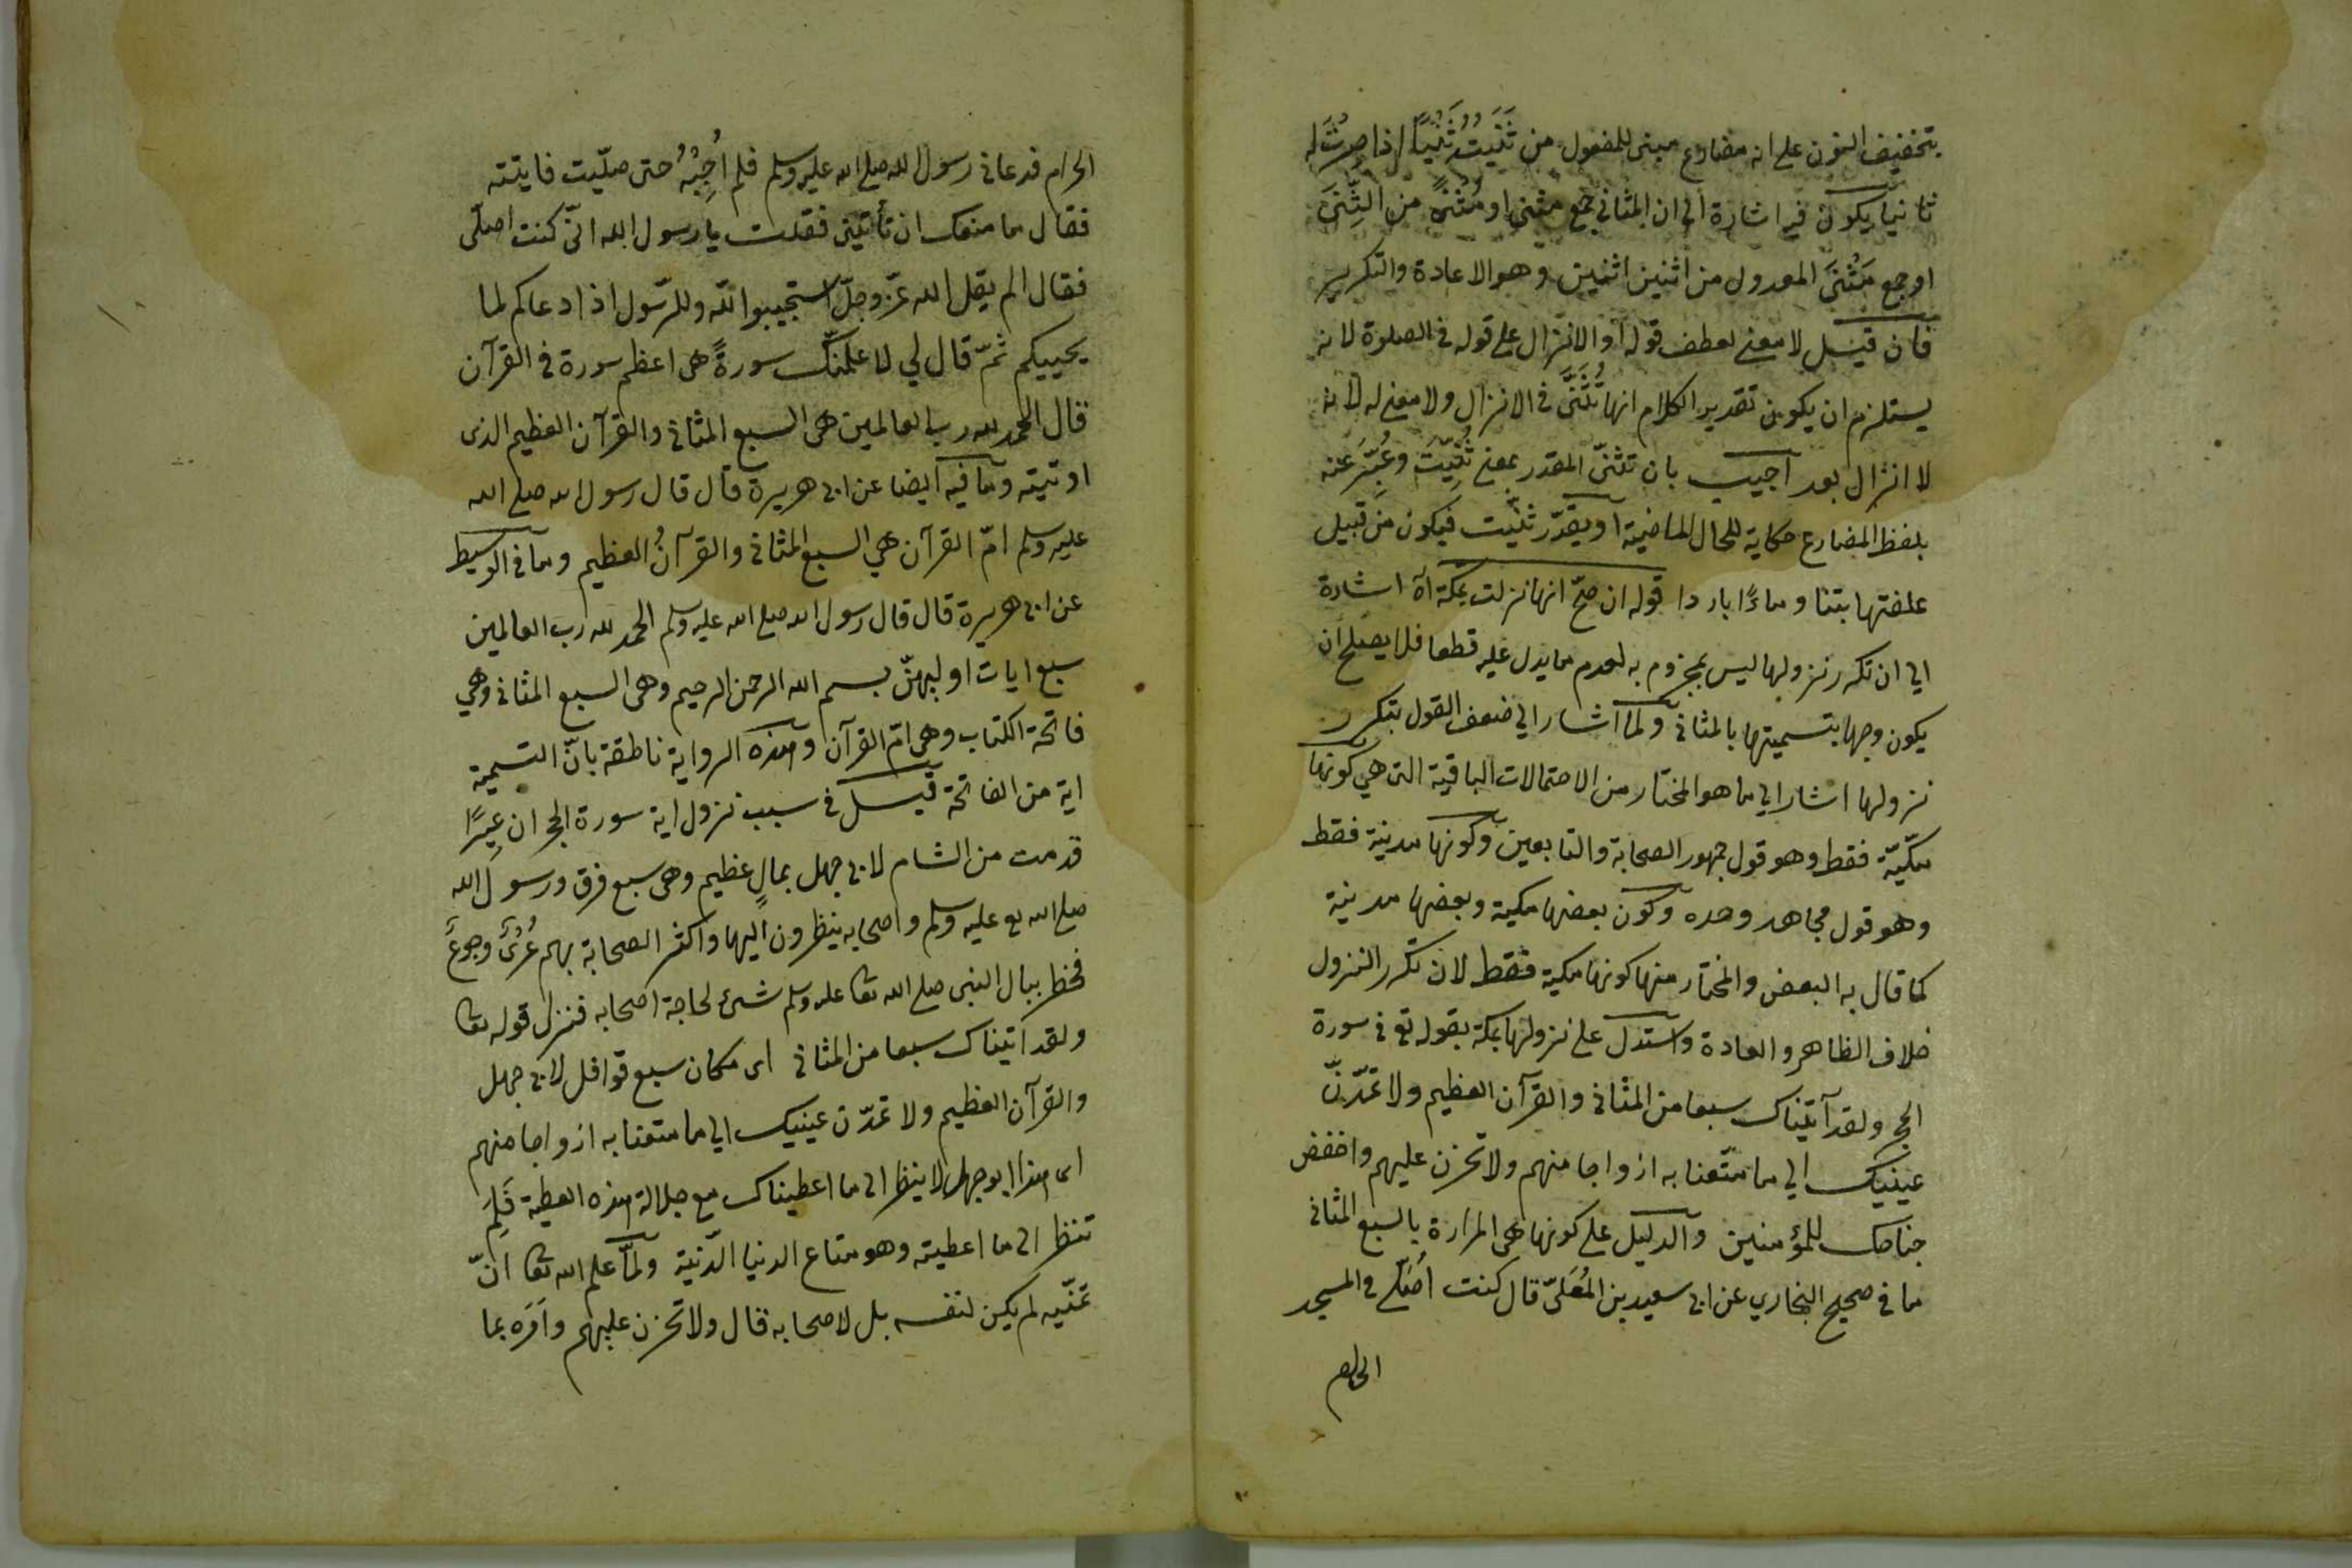 بتخفيف النون على انه مضارع مبنى للمفعول من ثَنَيتُهُ ثَنْيًا اذا صرتُ له
ثانيا يكون فيه اشارة الى ان المثانى جمع مثنى او مُثْنًى من الثِّنَى
او جمع مَثْنَى المعدول من اثنين اثنين وهو الاعادة والتكرير
فان قيل لا معنى لعطف قوله او الانزال على قوله فى الصلوة لانه
يستلزم ان يكون تقدير الكلام انها تُثَنَّى فى الانزال ولا معنى له لانه
لا انزال بعد اجيب بان تثنّى المقدر بمعنى ثُنِّيَتْ وعُبِّرَ عنه
بلفظ المضارع حكاية للحال الماضية او يقدّر ثنّيت فيكون من قبيل
علفتها تبنا وماءً باردا قوله ان صحّ انها نزلت بمكة آه اشارة
الى ان تكرر نزولها ليس بمجزوم به لعدم ما يدل عليه قطعا فلا يصلح ان
يكون وجها بتسميتها بالمثانى ولما اشار الى ضعف القول بتكرر
نزولها اشار الى ما هو المختار من الاحتمالات الباقية التى هى كونها
مكّيّة فقط وهو قول جمهور الصحابة والتابعين وكونها مدنية فقط
وهو قول مجاهد وحده وكون بعضها مكية وبعضها مدنية
كما قال به البعض والمختار منها كونها مكية فقط لان تكرر النزول
خلاف الظاهر والعادة واستدل على نزولها بمكة بقوله تع فى سورة
الحجر ولقد آتيناك سبعا من المثانى والقرآن العظيم ولا تمدّنّ
عينيك الى ما متّعنا به ازواجا منهم ولا تحزن عليهم واخفض
جناحك للمؤمنين والدليل على كونها هى المرادة بالسبع المثانى
ما فى صحيح البخاري عن ابى سعيد بن المُعَلّى قال كنت اُصَلّى فى المسجد
الحرام
الحرام فدعانى رسول الله صلى الله عليه وسلم فلم اُجِبْهُ حتى صلّيت فاتيته
فقال ما منعك ان تأتينى فقلت يا رسول الله انّى كنت اصلّى
فقال الم يقل الله عزّ وجلّ استجيبوا لله وللرّسول اذا دعاكم لما
يحييكم ثمّ قال لي لاعلمنّك سورةً هى اعظم سورة فى القرآن
قال الحمد لله رب العالمين هى السبع المثانى والقرآن العظيم الذى
اوتيته وما فيه ايضا عن ابى هريرة قال قال رسول الله صلى الله
عليه وسلم امّ القرآن هي السبع المثانى والقرآنُ العظيم وما فى الوسيط
عن ابى هريرة قال قال رسول الله صلى الله عليه وسلم الحمد لله رب العالمين
سبع ايات اوليهنّ بسم الله الرحمن الرحيم وهى السبع المثانى وهي
فاتحة الكتاب وهى امّ القرآن وهذه الرواية ناطقة بانّ التسمية
اية من الفاتحة قيل فى سبب نزول اية سورة الحجر ان عِيرًا
قدمت من الشام لابى جهل بمالٍ عظيم وهى سبع فرق ورسول الله
صلى الله تع عليه وسلم واصحابه ينظرون اليها واكثر الصحابة بهم عُرْىٌ وجوعٌ
فخطر ببال النبى صلى الله تعا عليه وسلم شئ لحاجة اصحابه فنزل قوله تعا
ولقد آتيناك سبعا من المثانى اى مكان سبع قوافل لابى جهل
والقرآن العظيم ولا تمدّن عينيك الى ما متعنا به ازواجا منهم
اى هذا ابو جهل لا ينظر الى ما اعطيناك مع جلالة هذه العطية فَلِمَ
تنظر الى ما اعطيته وهو متاع الدنيا الدّنيّة ولمّا علم الله تعا انّ
تمنّيه لم يكن لنفسه بل لاصحابه قال ولا تحزن عليهم واَمَرَه بما